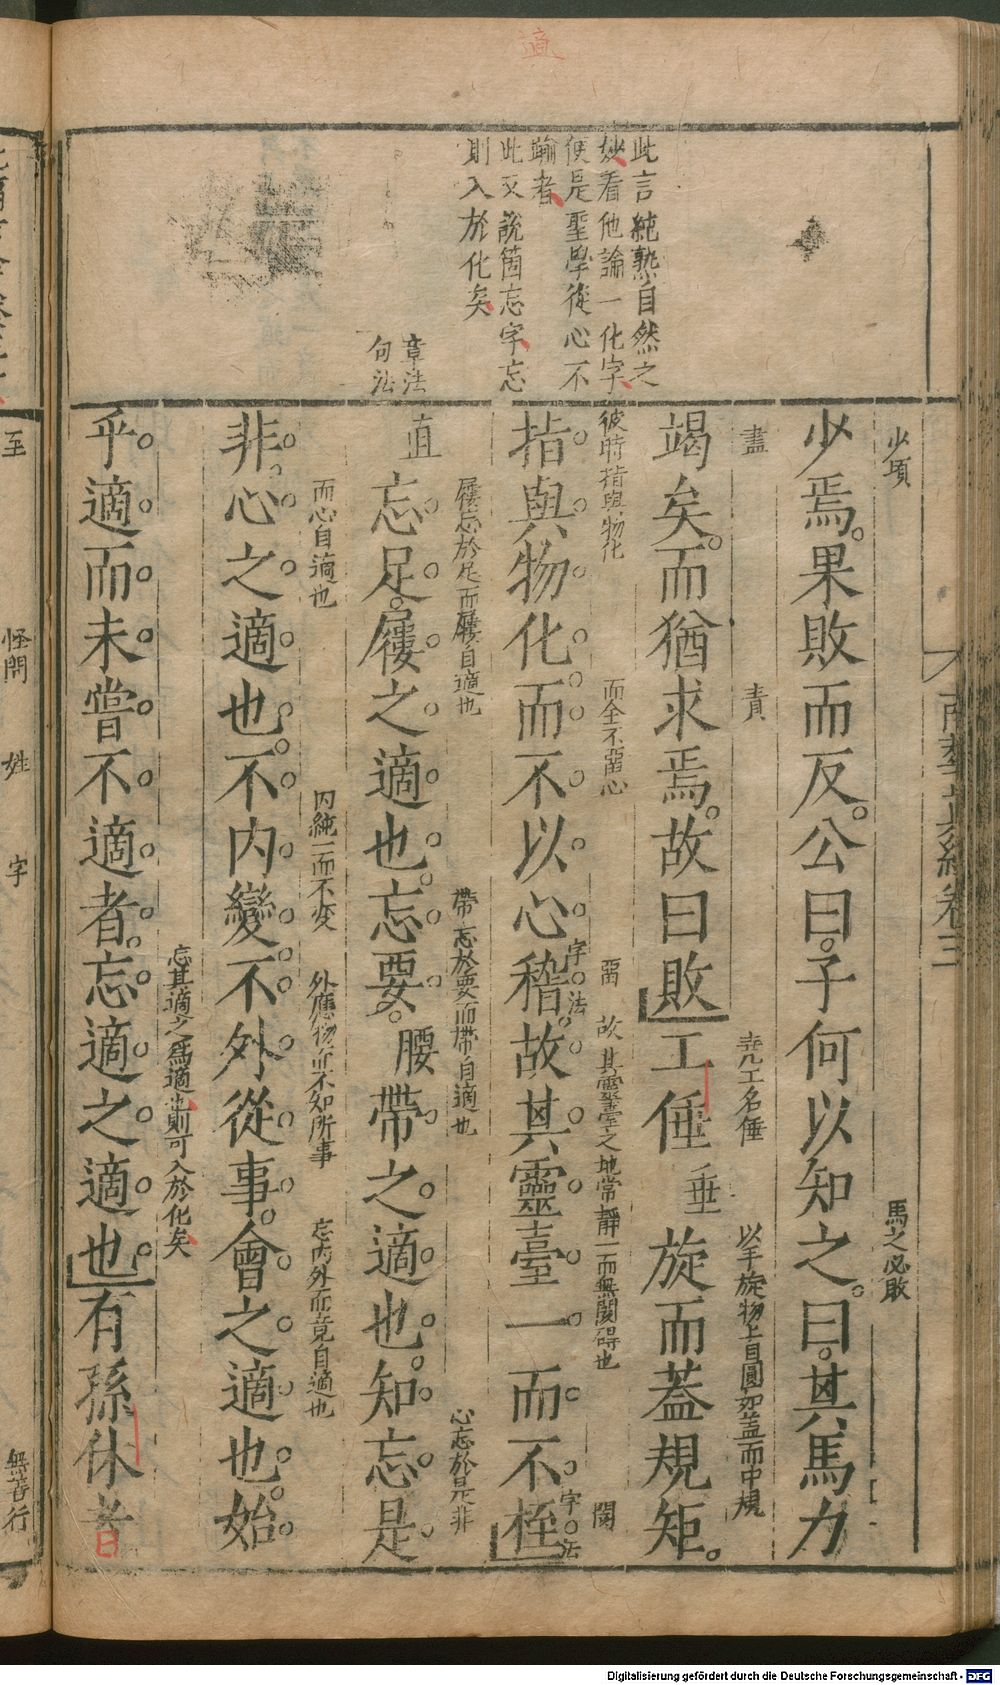 適
此言純熟自然之
妙看他論一化字
便是聖學從心不
踰者
此又說箇忘字忘
則入於化矣
章法
句法
南華真經卷三
少頃
馬之必敗
少焉果敗而反公曰子何以知之曰其馬力
盡
責
堯工名倕
以手旋物上自圓如蓋而中規
竭矣而猶求焉故曰敗工倕垂旋而蓋規矩
彼時指與物化
而全不留心
留
故其靈臺之地常靜一而無閡碍也
閡
指與物化而不以心稽故其靈臺一而不桎
字法
字法
屨忘於足而屨自適也
帶忘於要而帶自適也
心忘於是非
直忘足屨之適也忘要腰帶之適也知忘是
而心自適也
内純一而不変
外應物而不知所事
忘内外而竟自適也
非心之適也不内變不外從事會之適也始
忘其適之為適也則可入於化矣
乎適而未嘗不適者忘適之適也有孫休者
至
怪問
姓
字
無善行
Digitalisierung gefördert durch die Deutsche Forschungsgemeinschaft - DFG